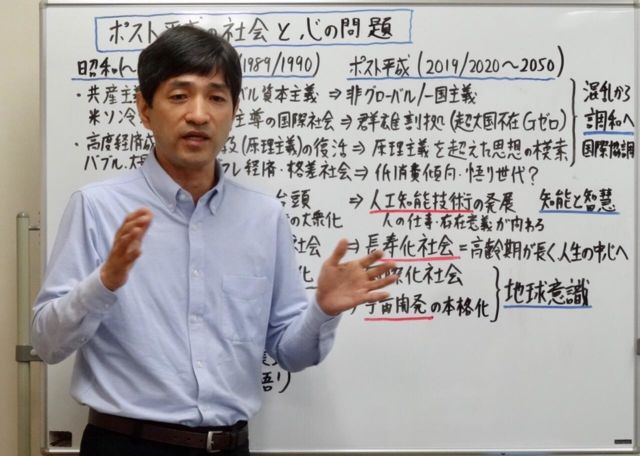 ポスト平成の社会と心の問題
昭和 (1989/1990) ポスト平成(2019/2020〜2050)
・共産主 バル資本主義 ⇒ 非グローバル/一国主義
米ソ冷 主導の国際社会 ⇒ 群雄割拠(超大国不在Gゼロ)
・高度経済成 (原理主義)の復活 ⇒ 原理主義を超えた思想の模索
バブル・大 フレ経済・格差社会 ⇒ 低消費傾向・悟り世代?
混乱から
調和へ
国際協調
台頭 ⇒ 人工知能技術の発展 知能と智慧
の大衆化 人の仕事・存在意義が問われる
社会 ⇒ 長寿化社会=高齢期が長く人生の中心へ
化 際化社会
宇宙開発の本格化
地球意識